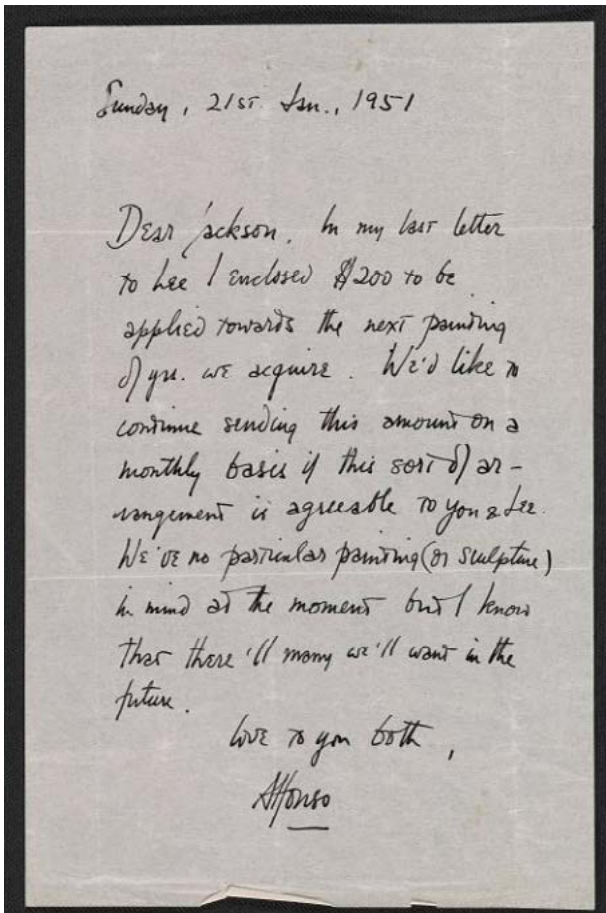 Sunday, 21st. Jan., 1951
Dear Jackson, In my last letter
to Lee I enclosed $200 to be
applied towards the next painting
of yrs. we acquire. We'd like to
continue sending this amount on a
monthly basis if this sort of ar-
rangement is agreeable to you & Lee.
We've no particular painting (or sculpture)
in mind at the moment but I know
that there'll many we'll want in the
future.
Love to you both,
Alfonso